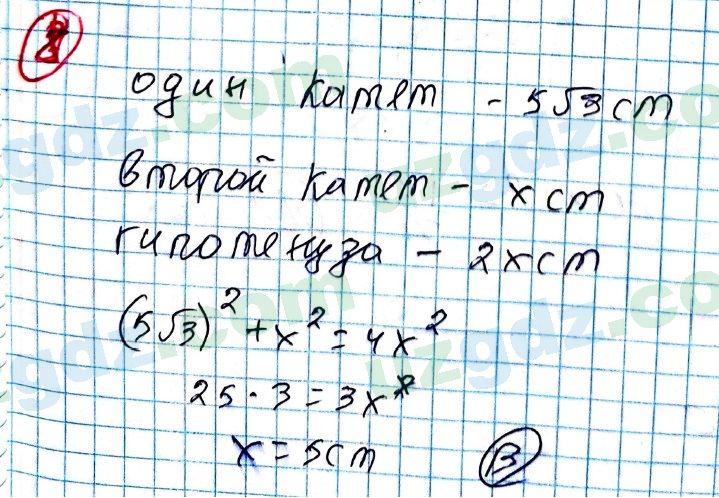 8
один катет - 5√3 cm
второй катет - x cm
гипотенуза - 2x cm
(5√3)² + x² = 4x²
25 · 3 = 3x²
x = 5cm
B